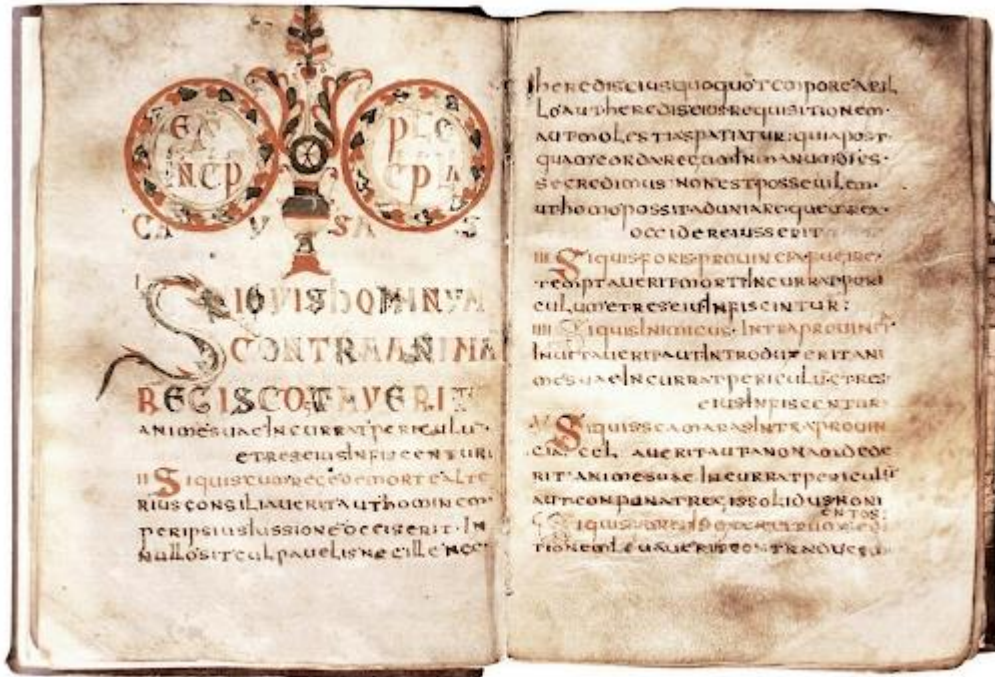 CAVSAS
I SIQVISHOMINVM
CONTRAANIMA
REGISCOTAVERIT
ANIMESUAEINCURRATPERICULU
ETRESEIUSINFISCENTURI
II SIQUISCUMREGEDEMORTEALTE
RIUSCONSILIAUERITAUTHOMINEM
PERIPSIUSIUSSIONEOCCISERIT·IN
NULLOSITCULPAUELISNECILLENEC
HEREDISEIUSQUOQUOTEMPORE
LOAUTHEREDISEIUSREQUISITIONEM·
AUTMOLESTIASPATIATUR:QUIAPOST
QUAMCORDAREGUMINMANUMDIES·
SECREDIMUS·NONESTPOSSEUILEM·
UTHOMOPOSSITADUNIAREQUEMREX·
OCCIDEREIUSSERIT
III SIQUISFORISPROUINCIAFUGIRE·
TEMPTAUERITMORTIINCURRATPERI
CULUMETRESEIUSINFISCINTUR:
IIII SIQUISINIMICUS·INTRAPROUINCI
INUITAUERITAUTINTRODUXERITANI
MESUAEINCURRATPERICULUETRES·
EIUSINFISCENTUR·
V SIQUISSCAMARASINTRAPROUIN
CIA·CELAUERITAUTANNONAMDEDE
RIT·ANIMESUAEINCURRATPERICULU
AUTCONPONATREGISSOLIDUSNONI
ENTOS:
TIONEMLEUAUERITCONTRADUCEM